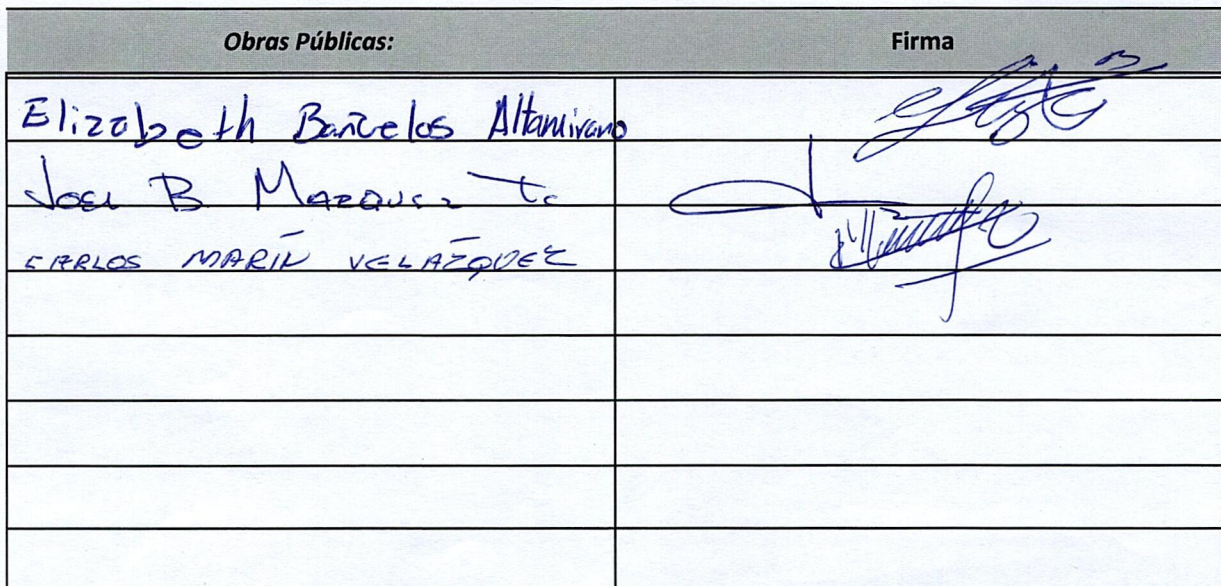 Obras Públicas: Firma
Elizabeth Bañuelos Altamirano
Joel B Mazquez
CARLOS MARIN VELAZQUEZ